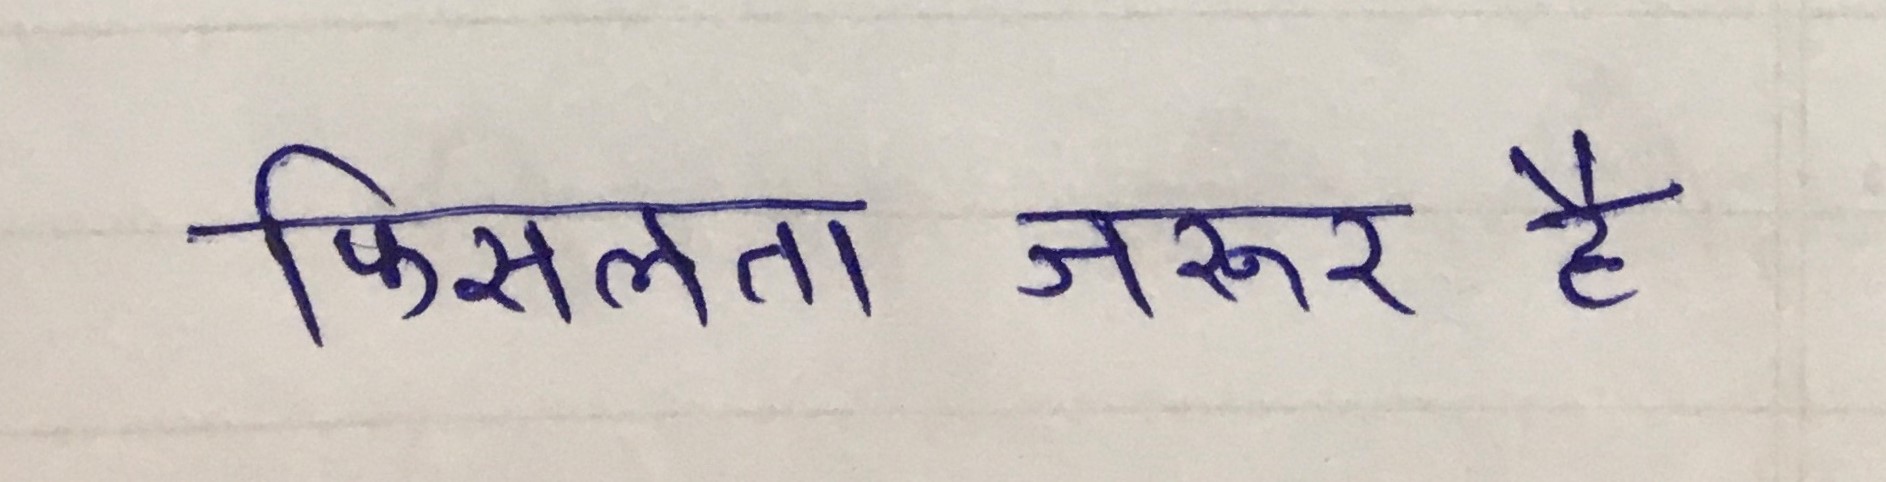 फिसलता जरूर है